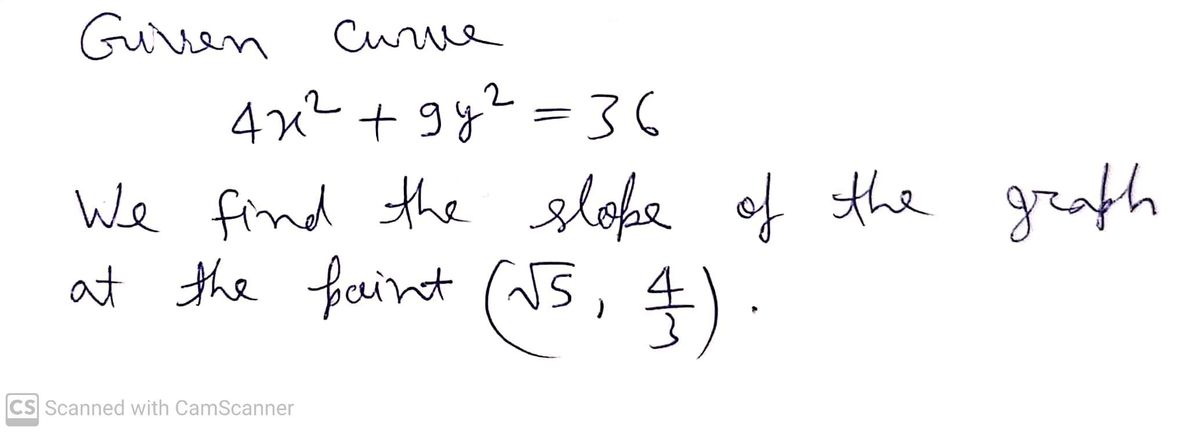 Given curve
4x² + 9y² = 36
We find the slope of the graph
at the point (√5, 4/3).
CS Scanned with CamScanner